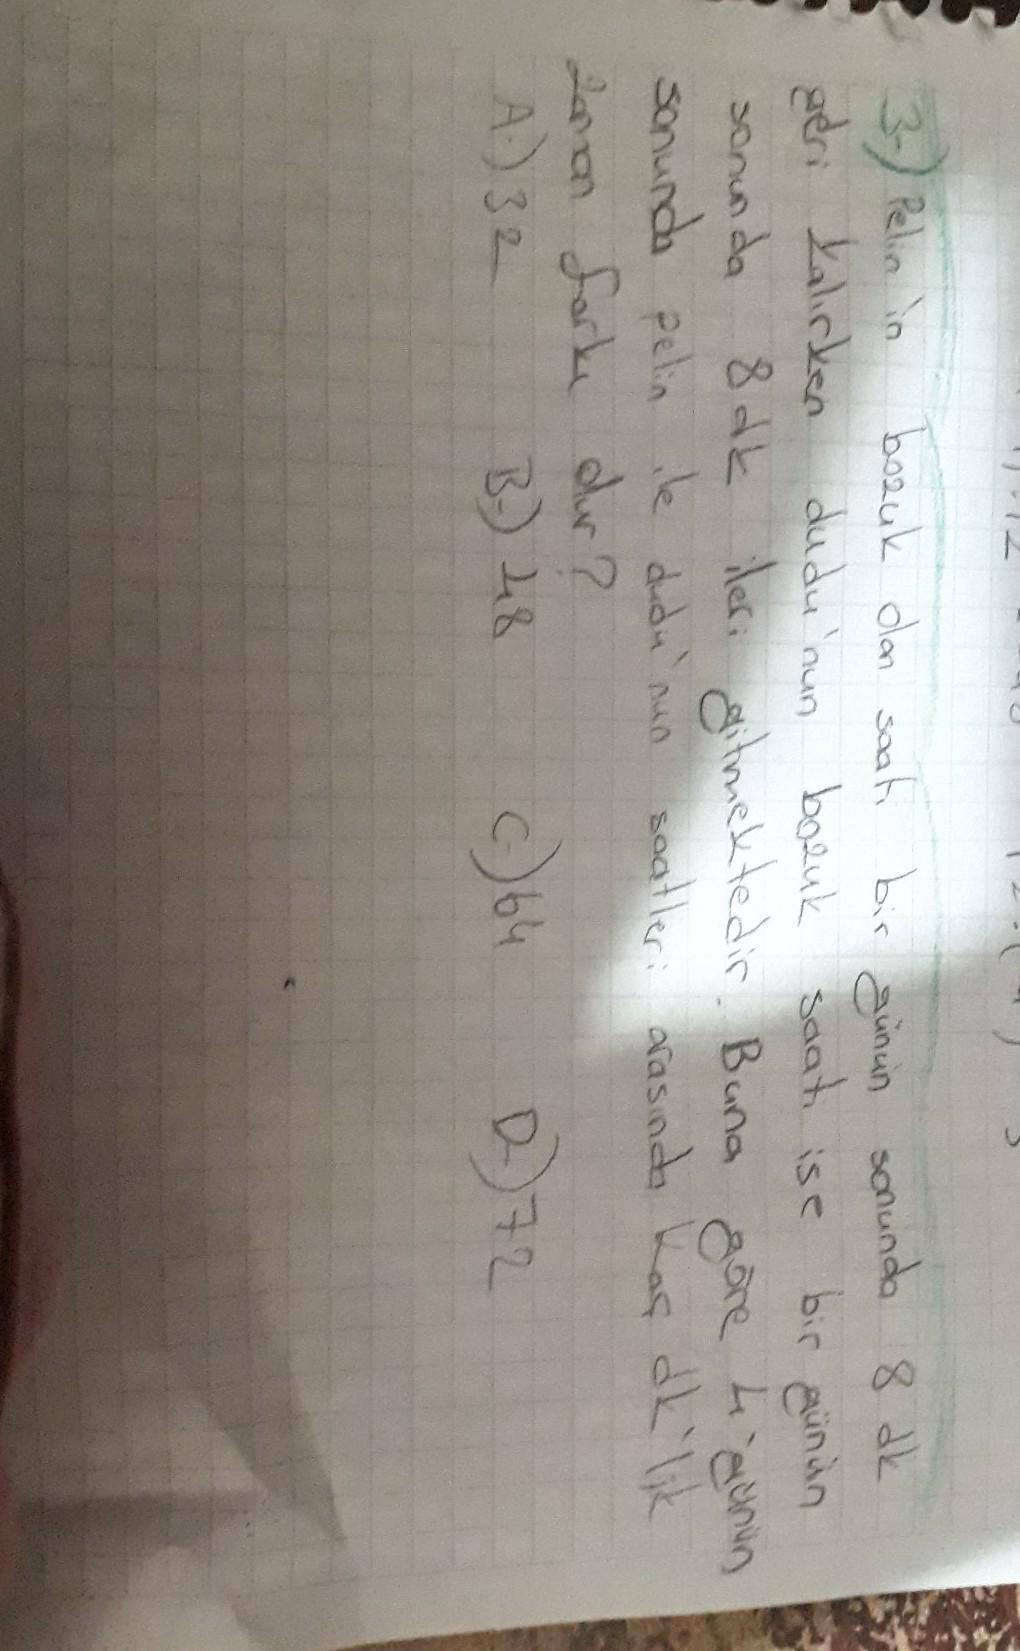 3-) Pelin'in bozuk olan saati bir günün sonunda 8 dk
geri kalırken dudu'nun bozuk saati ise bir günün
sonunda 8 dk ileri gitmektedir. Buna göre 4 günün
sonunda pelin ile dudu'nun saatleri arasında kaç dk'lik
zaman farkı olur?
A-) 32 B-) 48 C-) 64 D-) 72